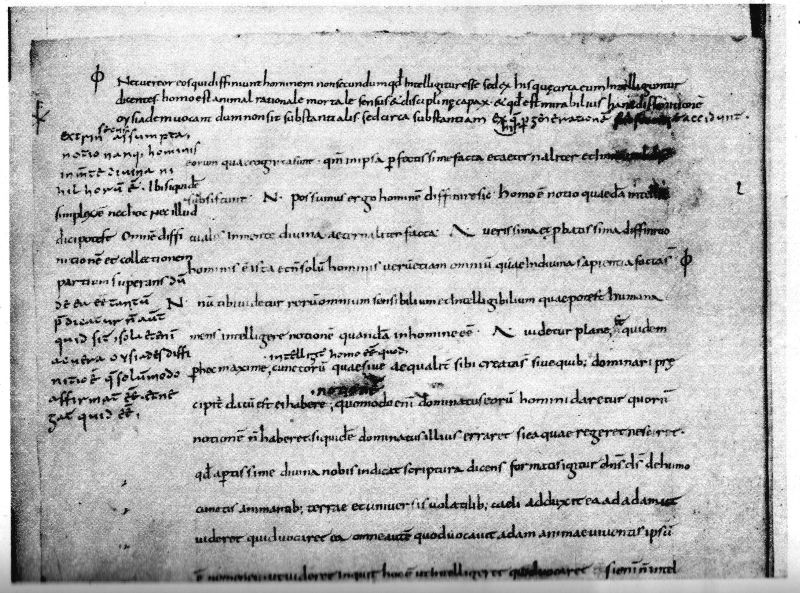 Nec uereor eos qui diffiniunt hominem non secundum qđ Intelligitur esse sed ex his quę circa eum Intelliguntur
dicentes homo est animal rationale mortale sensus & disciplinę capax & qđ est mirabilius hanc diffinitionē
oysiadem uocant dum non sit substantialis sed circa substantiam ex his q̄ p̱ generationē accidunt
extrinsecus assumpta,
notio nanq; hominis
in mente diuina ni
hil horū ē. Ibi siquidē
simplex ē nec hoc nec illud
dici potest Omnē diffi
nitionē et collectionem
partium superans dū
de ea et tantū
p̄dicatur n̄ aut
quid sit. sola etenī
ac uera oysiadęs diffi
nitio ē q̄ solūmodo
affirmat eē. et ne
gat quid eē,
eorum quae cognita sunt. qm̄ in ipsa p̱fectissime facta et aeternaliter et
subsistunt N. possumus ergo hominē diffinire sic homo ē notio quaedā intellec
tualis in mente diuina aeternaliter facta. A uerissima et p̱batissima diffinitio
hominis ē ista et n̄ solū hominis uerū etiam omniū quae In diuina sapientia facta s̄
N. nū tibi uidetur rerū omnium sensibilium et Intelligibilium quae potest humana
mens intelligere notionē quandā in homine eē. A uidetur plane, et quidem
intelligit homo eē quod
p̱ hoc maxime, cunctorū quae siue aequalit̄ sibi creata s̄ siue quib; dominari prę
notionē
cipit̄ datū est ei habere, quomodo enī dominatus eorū homini daretur quorū
notionē n̄ haberet. siquidē dominatus illius erraret si ea quae regeret nesciret.
qđ aptissime diuina nobis indicat scriptura dicens formatis igitur dn̄s ds̄ de humo
cunctis animantib; terrae et uniuersis uolatilib; caeli adduxit ea ad adam ut
uideret quid uocaret ea omne autē quod uocauit adam animae uiuentis ipsū
ē nomen eius ut uideret inquit hoc ē ut Intelligeret quid uocaret. si enī n̄ intel